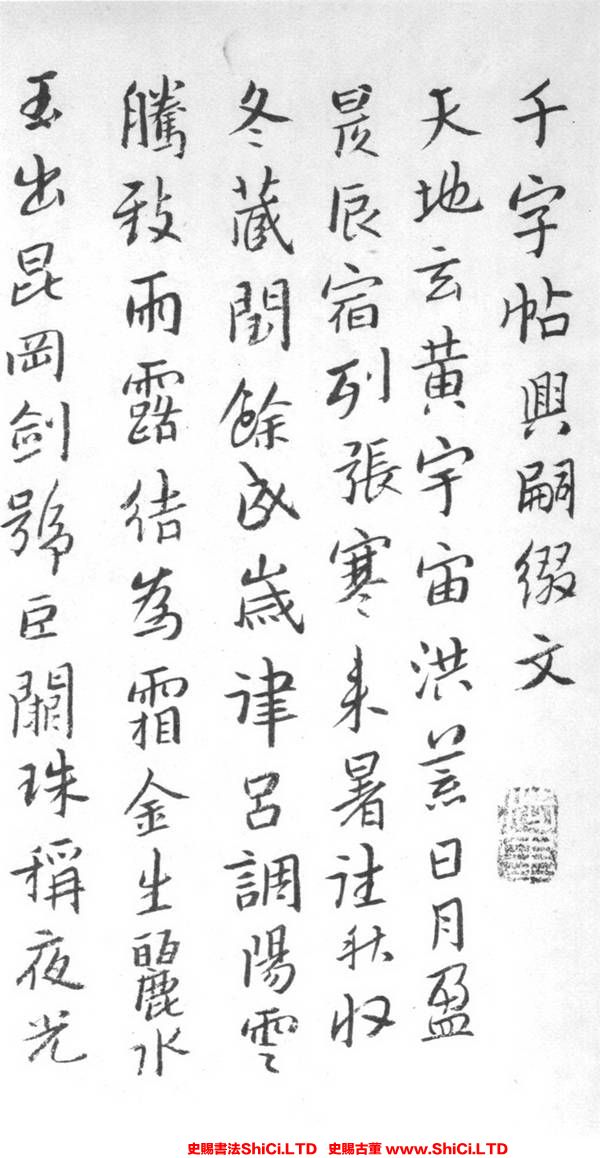 千字帖興嗣綴文
天地玄黃宇宙洪荒日月盈
昃辰宿列張寒来暑往秋收
冬蔵閏餘成歲律呂調陽雲
騰致雨露結為霜金生麗水
玉出昆岡劍號巨闕珠稱夜光
史賜書法ShiCi.LTD 史賜古董 www.ShiCi.LTD